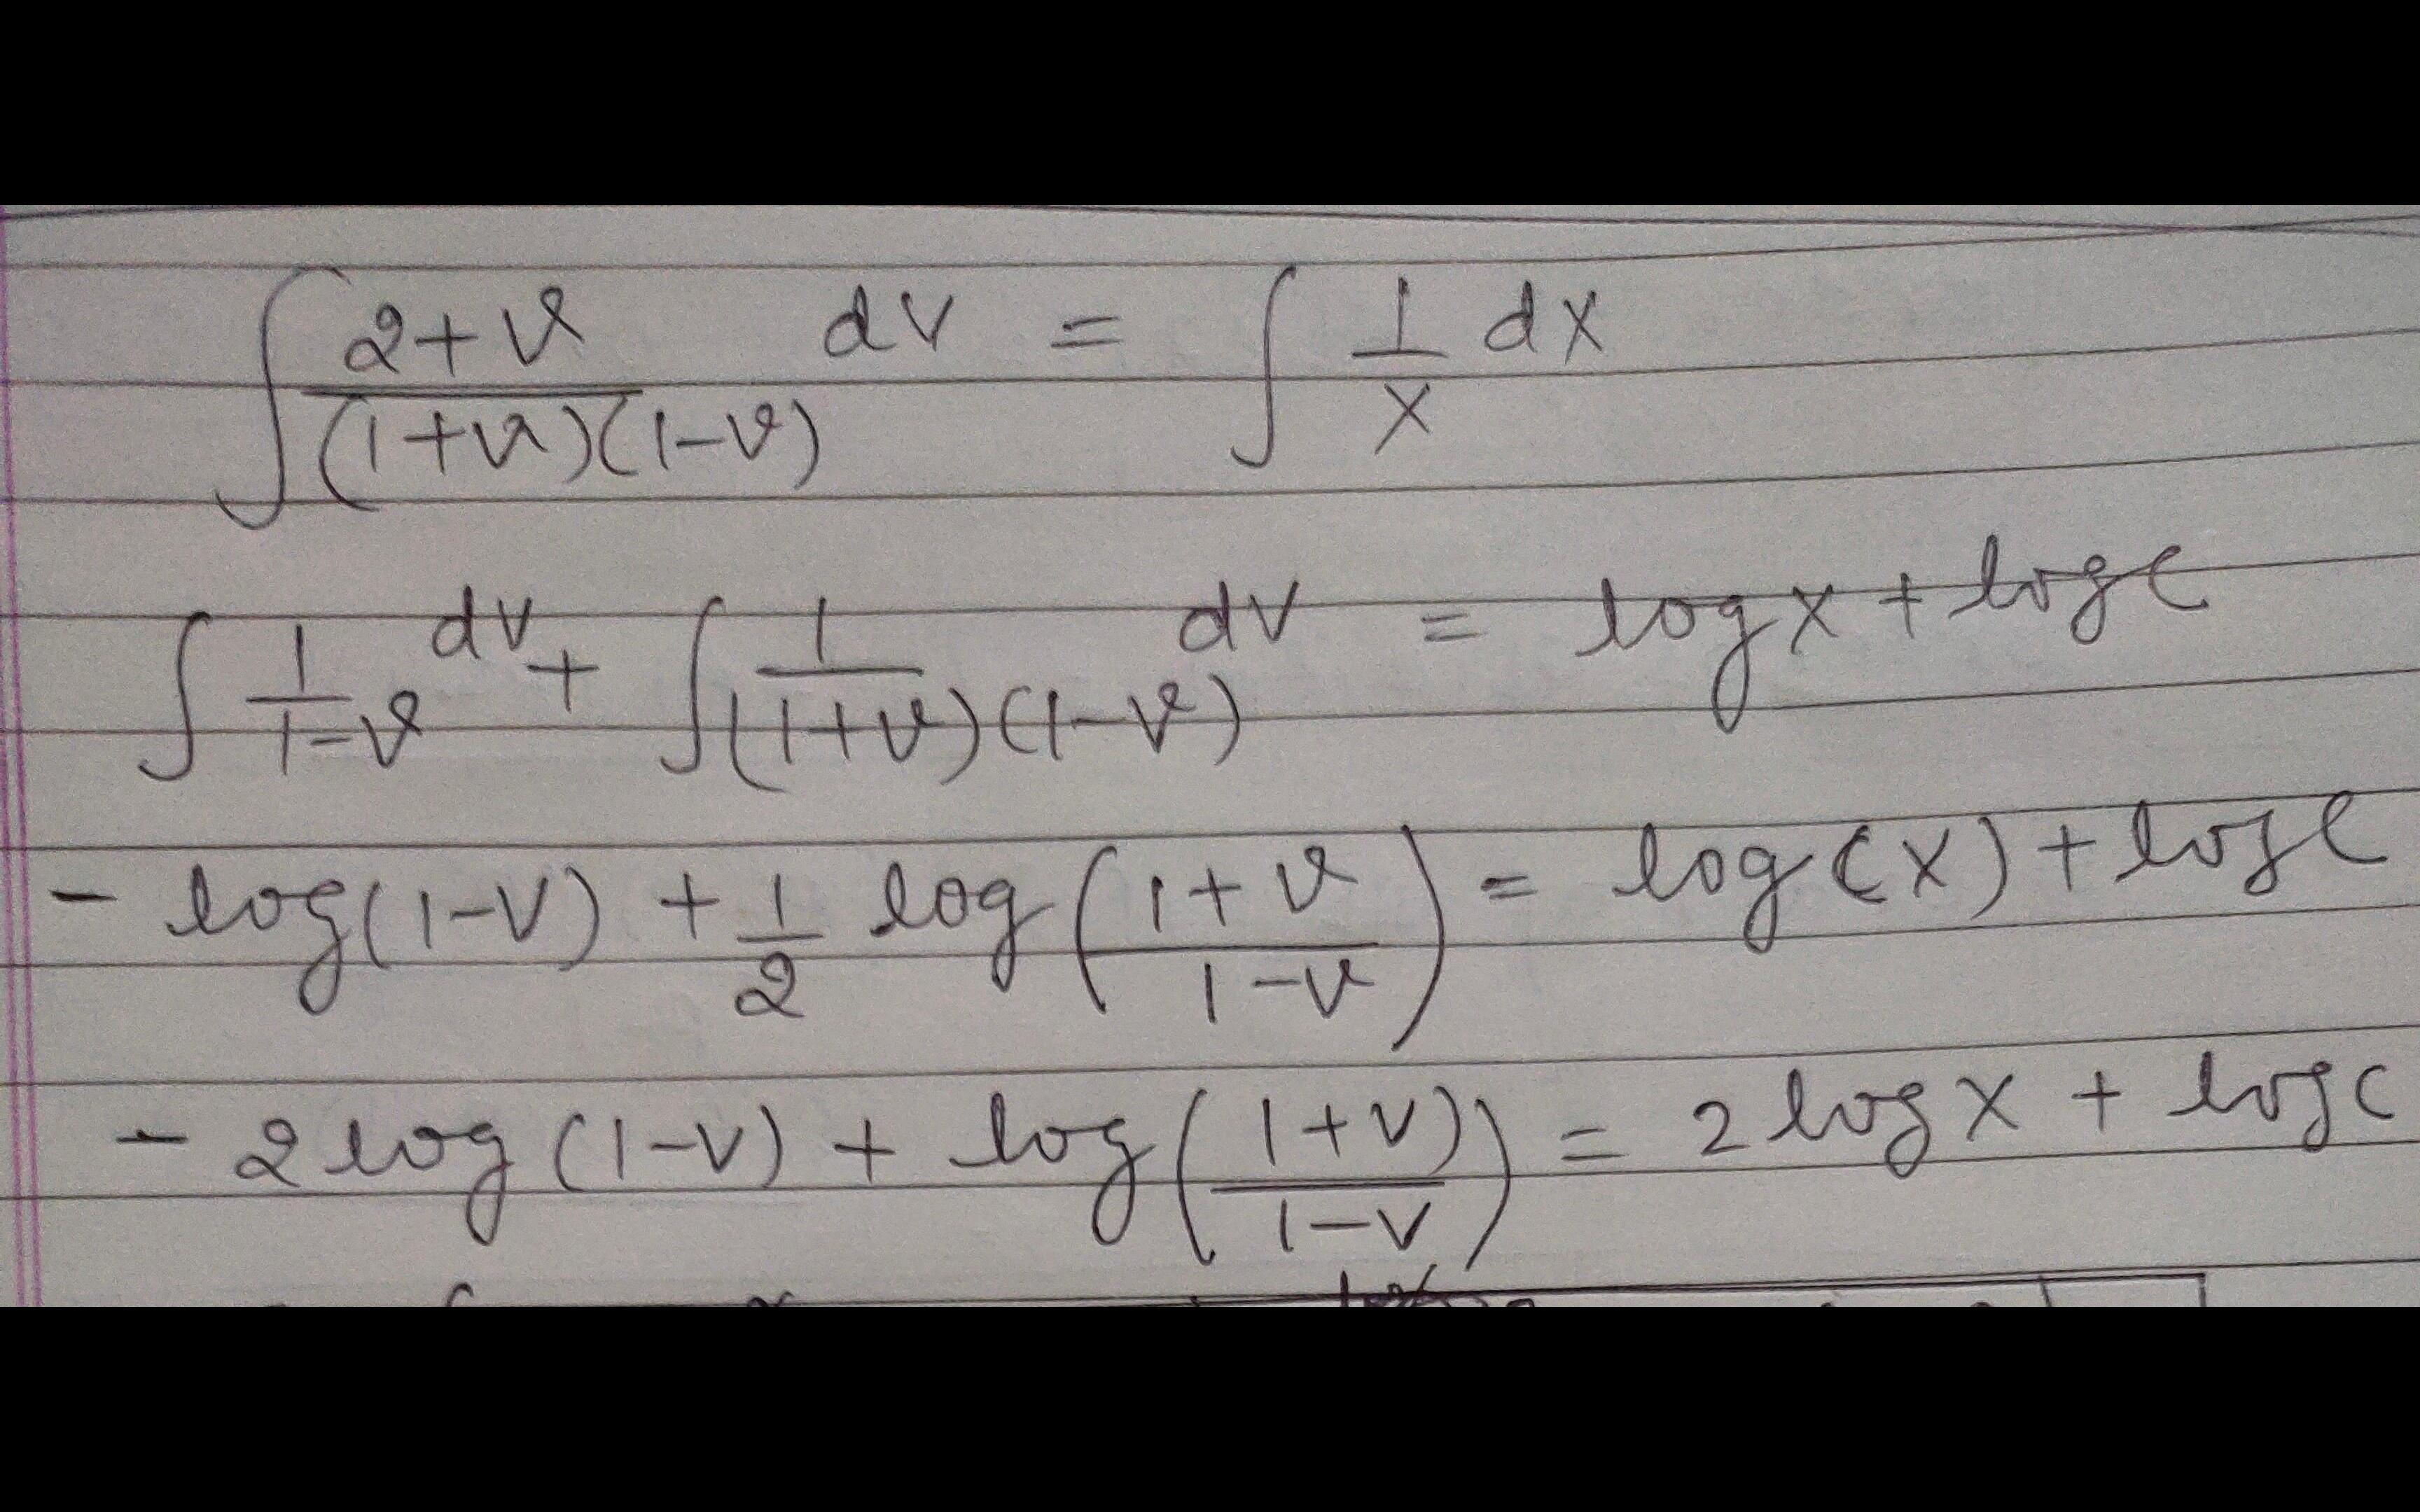 ∫ (2+v)/((1+v)(1-v)) dv = ∫ 1/x dx
∫ 1/(1-v) dv + ∫ 1/((1+v)(1-v)) dv = log x + log c
- log(1-v) + 1/2 log((1+v)/(1-v)) = log(x) + log c
- 2 log(1-v) + log((1+v)/(1-v)) = 2 log x + log c